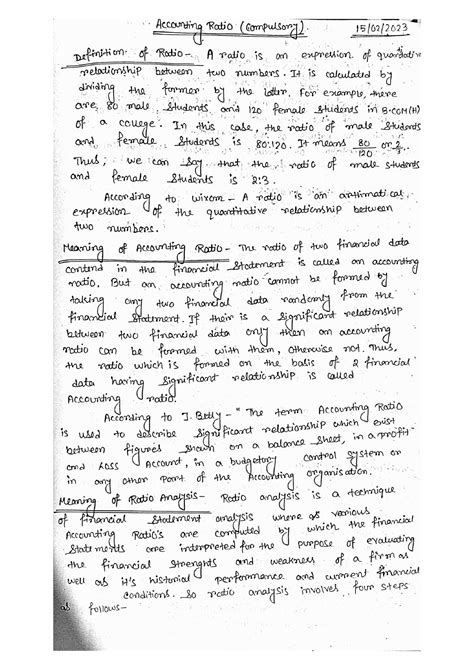 Accounting Ratio (Compulsory). 15/02/2023
Definition of Ratio - A ratio is an expression of quantitative
relationship between two numbers. It is calculated by
dividing the former by the latter. For example, there
are 80 male students and 120 female students in B.COM(H)
of a college. In this case, the ratio of male students
and female students is 80:120. It means 80/120 or 2/3.
Thus, we can say that the ratio of male students
and female students is 2:3.
According to wixom - A ratio is an
expression of the quantitative relationship between
two numbers.
Meaning of Accounting Ratio - The ratio of two financial data
contend in the financial statement is called an accounting
ratio. But an accounting ratio cannot be formed by
taking any two financial data randomly from the
financial statement. If their is a significant relationship
between two financial data only then an accounting
ratio can be formed with them, otherwise not. Thus,
the ratio which is formed on the basis of 2 financial
data having significant relationship is called
Accounting ratio.
According to J. Betty - "The term Accounting Ratio
is used to describe significant relationship which exist
between figures shown on a balance sheet, in a profit
and loss Account, in a budgetory control system or
in any other part of the Accounting organisation.
Meaning of Ratio Analysis - Ratio analysis is a technique
of financial statement analysis where as various
Accounting Ratio's are computed by which the financial
Statements are interpreted for the purpose of evaluating
the financial strenghts and weakness of a firm as
well as it's historial performance and current financial
conditions. So ratio analysis involves four steps
as follows-